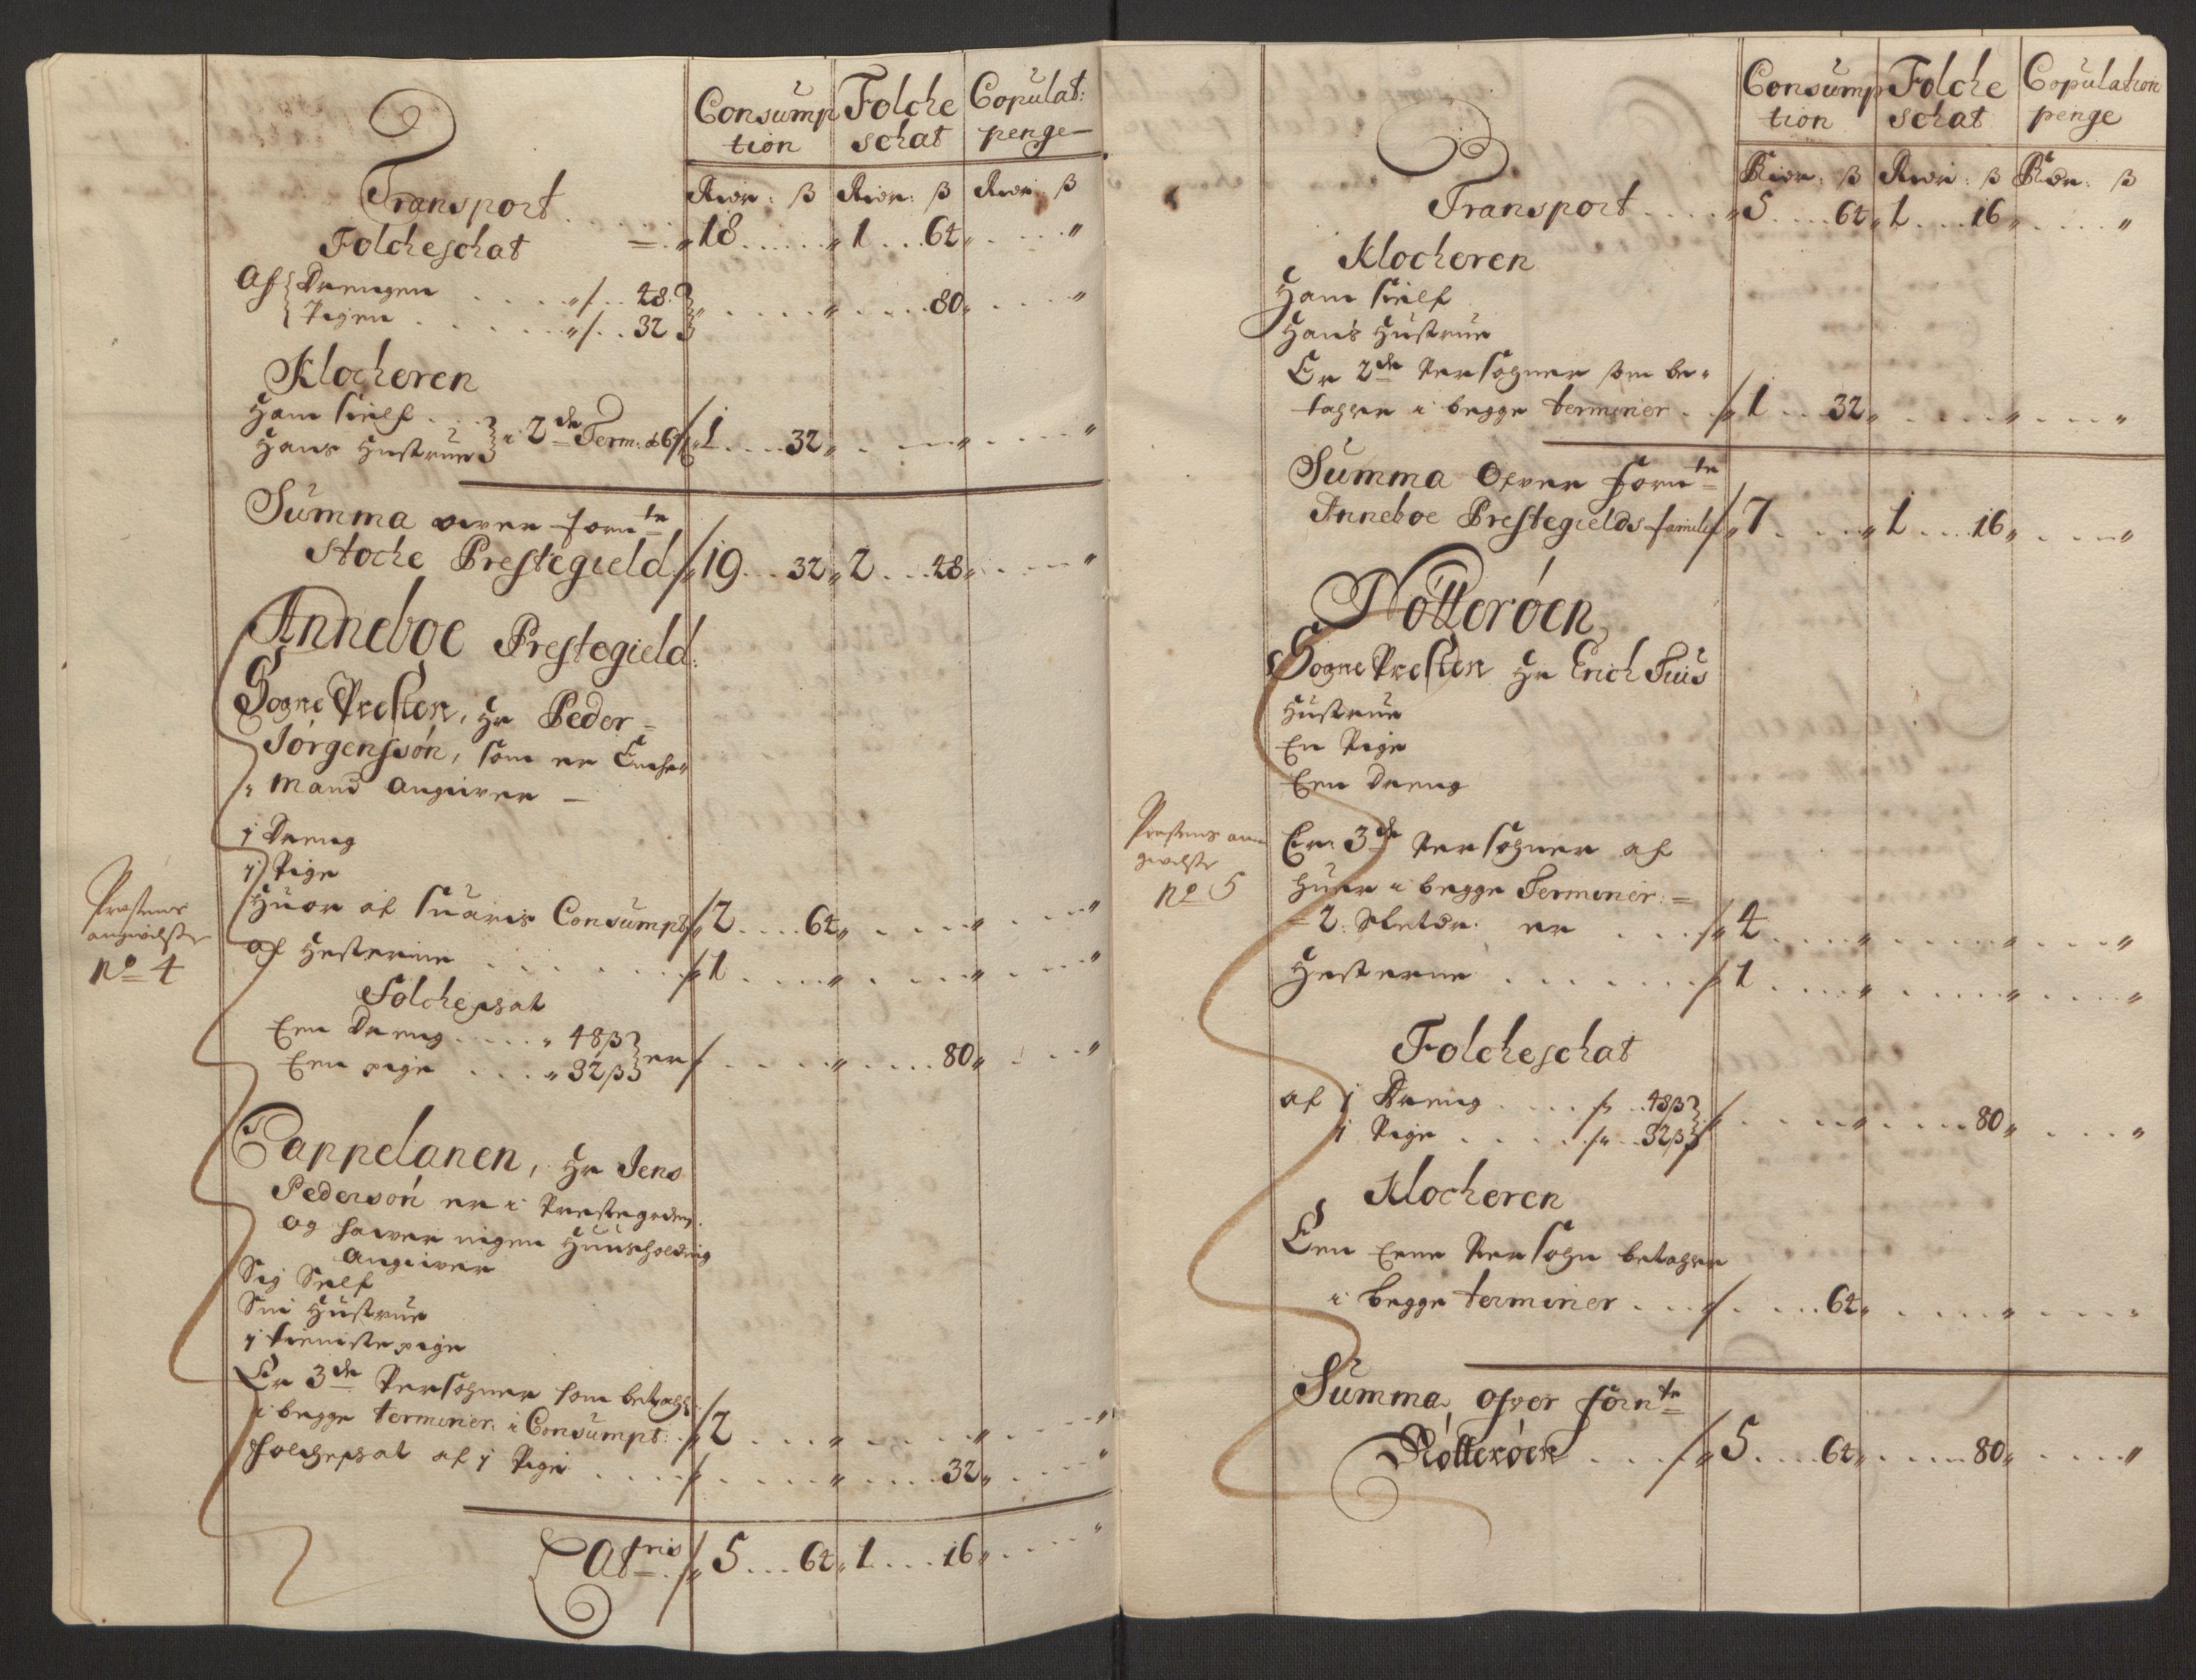 Consump Folche Copulat:
tion schat penge
Rixdr: ß Rixdr: ß Rixdr: ß
Transport . . . . . 18 . . . . „ 1 . . . 64 „ . . . . „
Folcheschat
Af Drengen . . . . „ . . 48
Pigen . . . . . „ . . 32 „ . . . . „ . . . . 80 „ . . . „
Klocheren
Ham sielf . . .
Hans Hustrue i 2de Term: á 64 1 . . . . 32 „ . . . . „ . . . . „
Summa over forn:te
Stoche Prestegield 19 . . . 32 „ 2 . . . 48 „ . . . . „
Anneboe Prestegield:
Sogne Presten, Hr Peder
Jörgenssön, som er Enche
mand angiiver –
1 Dreng
1 Pige
Præstens
angivelse
No 4
Huor af suaris Consumpt 2 . . . . 64 „ . . . . „ . . . . „
af Hesterne . . . . . . . 1 . . . . „ . . . . „ . . . . „
Folchesat
Een Dreng . . . . . „ 48 ß
Een pige . . . . „ 32 ß er . . . . „ . . . . 80 „ . . . „
Cappelanen, Hr Jens
Pedersön er i Prestegarden
og haver eigen Huusholding
Angiiver
Sig Self
Sin Hustrue
1 tieniste pige
Er 3de Persohner som betahl:
i begge terminer i Consumpt: 2 . . . . „ . . . . „ . . . . „
folchesat af 1 Pige . . . . . . . . . „ . . . . 32 „ . . . . „
Latris 5 . . . 64 „ 1 . . . . 16 „ . . . . „
Consump Folche Copulation
tion schat penge
Rixdr: ß Rixdr: ß Rixdr: ß
Transport . . . . „ 5 . . . . 64 „ 1 . . . 16 „ . . . . „
Klocheren
Ham sielf
Hans Hustrue
Er 2de Persohner som be-
tahler i begge terminer . . 1 . . . 32 „ . . . . „ . . . . „
Summa Ofver forn:te
Anneboe Prestegields familie 7 . . . . „ 1 . . . 16 „ . . . . „
Nötteröen
Sogne Presten Hr Erich Tuis
Hustrue
En Pige
Een Dreng
Præstens an
givelse
No 5
Er 3de Persohner af
huer i begge Terminer =
= 2. Sletdr: er . . . 4 . . . . „ . . . . „ . . . . „
Hesterne . . . . . . . 1 . . . . „ . . . . „ . . . . „
Folcheschat
af 1 Dreng . . . . . 48 ß
1 Pige . . . . . . . 32 ß . . . . „ . . . . 80 „ . . . . „
Klocheren
Een Eene Persohn betahler
i begge terminer . . . . . . . 64 „ . . . . „ . . . . „
Summa ofver forn:te
Nötteröen . . . . „ 5 . . . . 64 „ . . . . 80 „ . . . . „